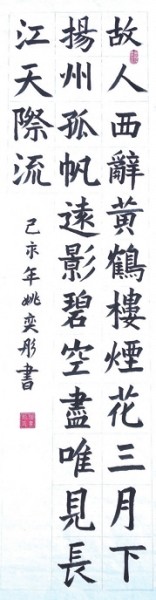 故人西辭黃鶴樓煙花三月下
揚州孤帆遠影碧空盡唯見長
江天際流
己亥年姚奕彤書